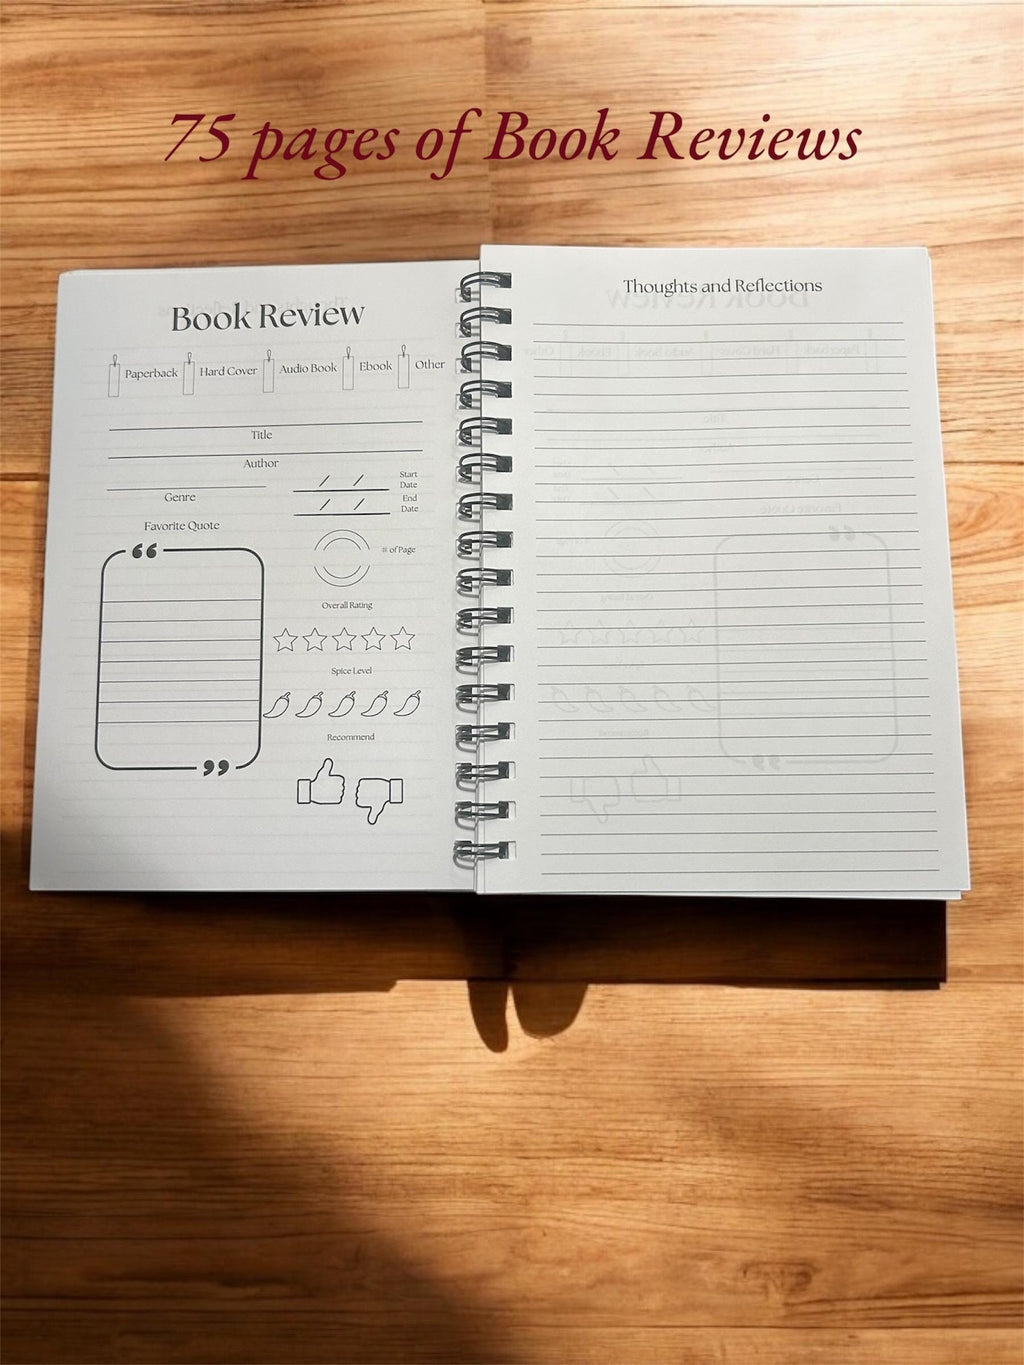 75 pages of Book Reviews
Book Review
Paperback Hard Cover Audio Book Ebook Other
Title
Author
Genre
/ / Start Date
/ / End Date
Favorite Quote
“
”
# of Page
Overall Rating
Spice Level
Recommend
Thoughts and Reflections